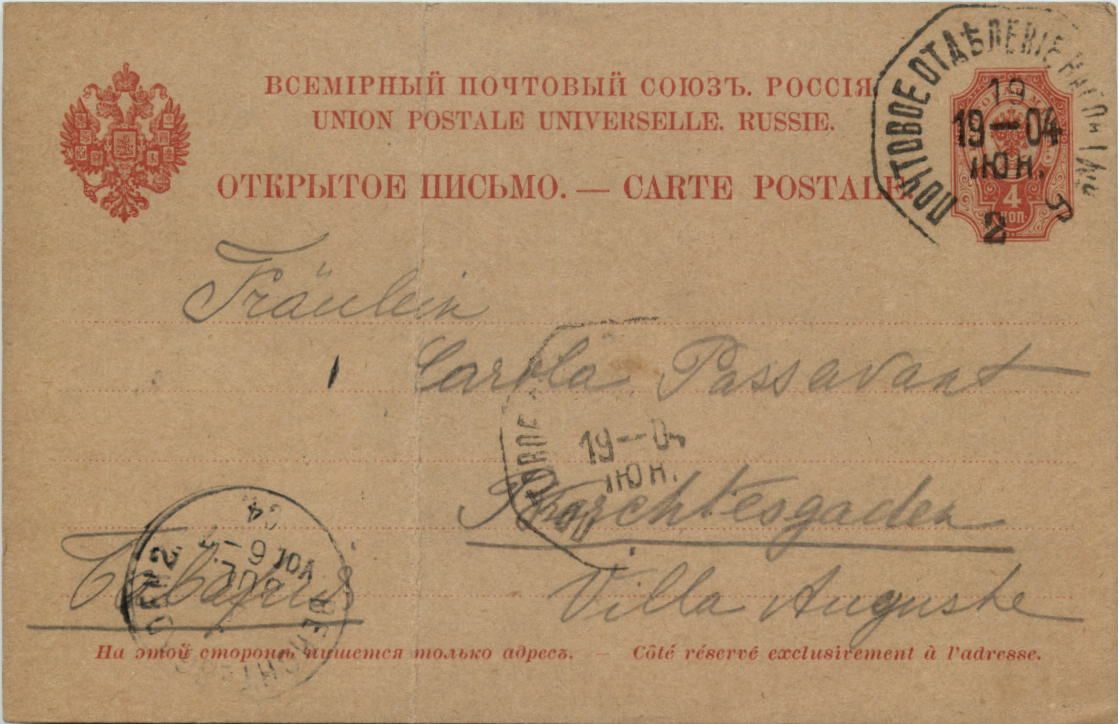 ВСЕМІРНЫЙ ПОЧТОВЫЙ СОЮЗЪ. РОССІЯ
UNION POSTALE UNIVERSELLE. RUSSIE.
ОТКРЫТОЕ ПИСЬМО. — CARTE POSTALE
ПОЧТОВОЕ ОТДѢЛЕНІЕ
19
19—04
ІЮН.
2
4
КОП.
Fräulein
Carola Passavant
19—04
ІЮН.
Berchtesgaden
Villa Auguste
На этой сторонѣ пишется только адресъ. — Côté réservé exclusivement à l'adresse.